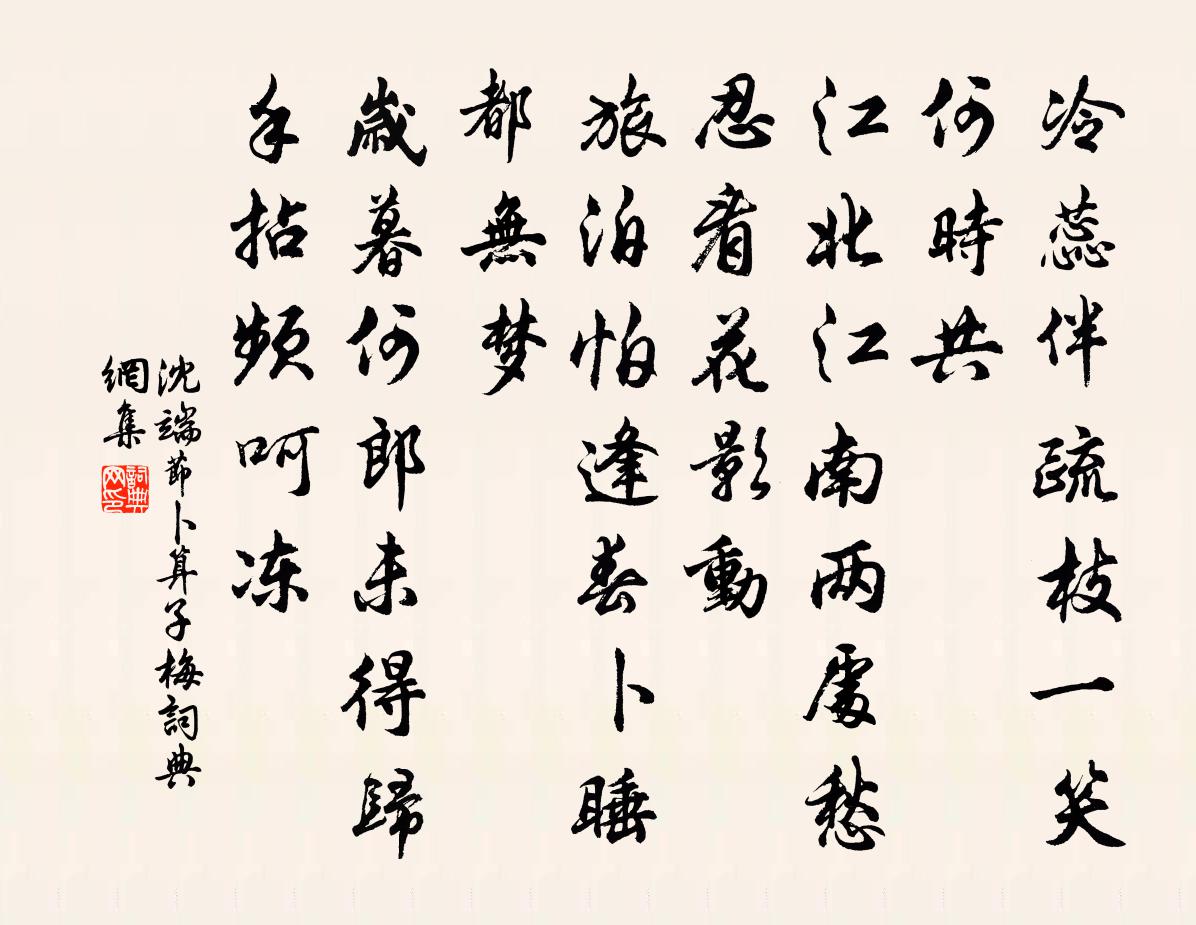 冷蕊伴疏枝一笑
何時共
江北江南两處愁
忍看花影動
旅泊怕逢春卜睡
都無梦
歲暮何郎未得歸
手拈頻呵冻
沈端莭卜算子梅詞典
網集
詞典网印